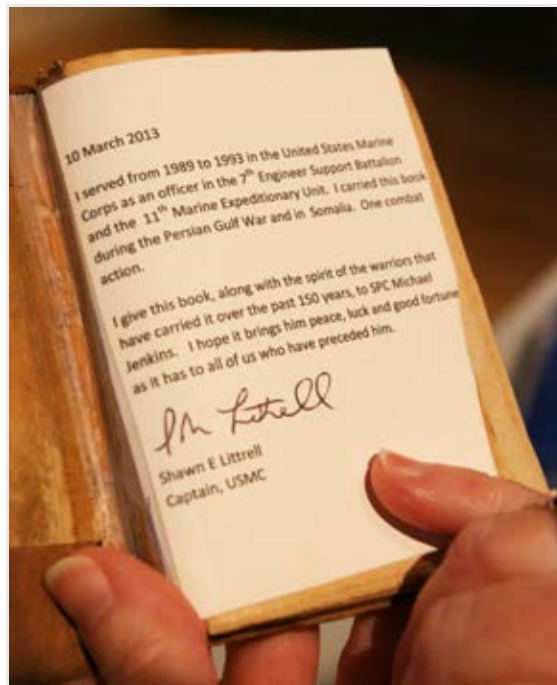 10 March 2013
I served from 1989 to 1993 in the United States Marine
Corps as an officer in the 7th Engineer Support Battalion
and the 11th Marine Expeditionary Unit. I carried this book
during the Persian Gulf War and in Somalia. One combat
action.
I give this book, along with the spirit of the warriors that
have carried it over the past 150 years, to SPC Michael
Jenkins. I hope it brings him peace, luck and good fortune
as it has to all of us who have preceded him.
Littrell
Shawn E Littrell
Captain, USMC